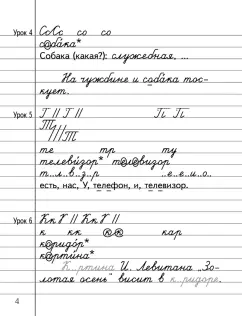 Урок 4 СоСс со со
собака*
Собака (какая?): служебная, ...
На чужбине и собака тос-
кует.
Урок 5 Г || Т || П П
Т
те тр ту
телевизор* телевизор
т..л..в..з..р ..е..е..и..о..
есть, нас, У, телефон, и, телевизор.
Урок 6 КкК || КкК ||
к кк кк кар
коридор*
картина*
К..ртина И. Левитана „Зо-
лотая осень" висит в к..ридоре.
4